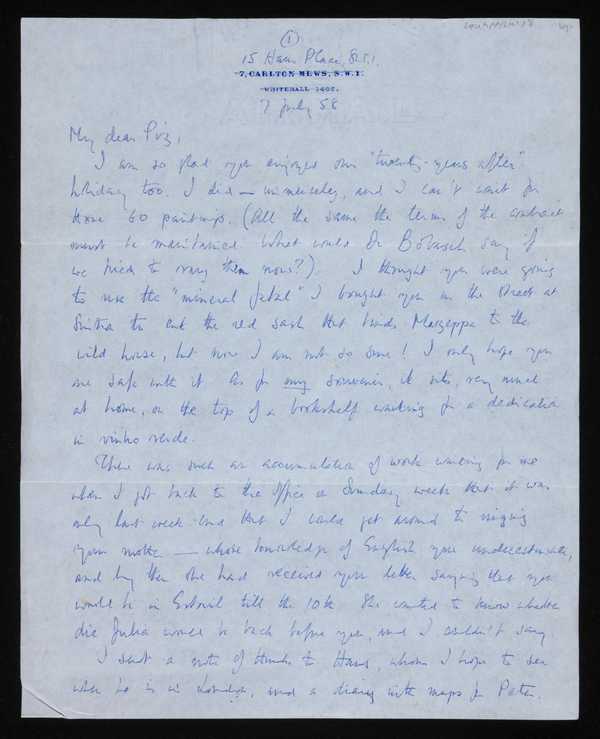 (1)
15 Hans Place, S.W.1.
7, CARLTON MEWS, S.W.1.
WHITEHALL
7 July 58
My dear
I am so glad you enjoyed our "twenty-years after"
holiday too. I did — immensely, and I can't wait for
those 60 paintings. (All the same the terms of the contract
must be maintained. What would Dr say if
we tried to vary them now?). I thought you were going
to use the "mineral" I bought you in the street at
Sintra to cut the red sash that binds Mazeppa to the
wild horse, but now I am not so sure! I only hope you
are safe with it. As for my souvenir, it sits, very much
at home, on the top of a bookshelf waiting for a dedication
in vinho verde.
There was such an accumulation of work waiting for me
when I got back to the office on Sunday week that it was
only last week-end that I could get around to ringing
your mother — whose knowledge of English you underestimate,
and by then she had received your letter saying that you
would be in Estoril till the 10th. She wanted to know whether
die Julia would be back before you, and I couldn't say.
I sent a note of thanks to Hans, whom I hope to see
when he is in London, and a diary with maps for Peter.